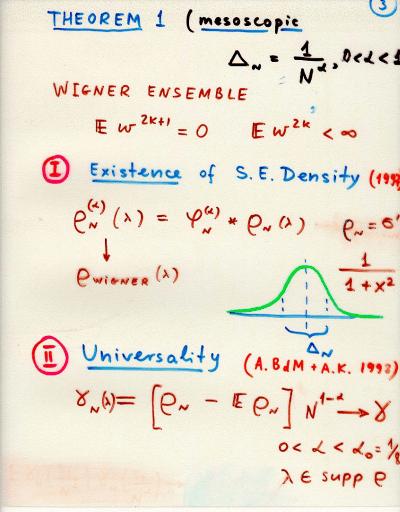 3
THEOREM 1 (mesoscopic
Δ_N = 1/N^α, 0<α<1
WIGNER ENSEMBLE
𝔼 w^{2k+1} = 0   𝔼 w^{2k} < ∞
I Existence of S.E.Density
ρ_N^{(α)}(λ) = φ_N^{(α)} * ρ_N(λ)   ρ_N = σ'
↓
ρ_WIGNER(λ)
1/(1+x²)
Δ_N
II Universality (A.BdM + A.K. 1993)
γ_N(λ) = [ρ_N - 𝔼 ρ_N] N^{1-α} → γ
0< α < α_0 = 1/8
λ ∈ supp ρ